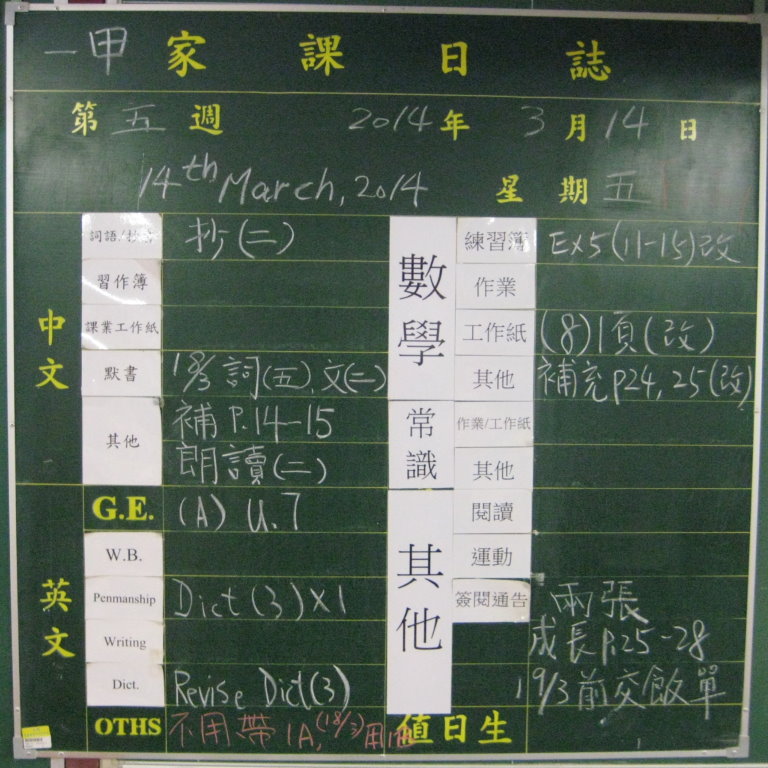 一甲 家課日誌
第五週 2014年3月14日
14th March, 2014 星期五
中文
詞語/
抄(二)
習作簿
課業工作紙
默書
18/3 詞(五)、文(二)
其他
補 P.14-15
朗讀(二)
英文
G.E.
(A) U.7
W.B.
Penmanship
Dict(3)×1
Writing
Dict.
Revise Dict(3)
OTHS
不用帶1A,(18/3)用
數學
練習簿
Ex5(11-15)改
作業
工作紙
(8)1頁(改)
其他
補充p24,25(改)
常識
作業/工作紙
其他
其他
閱讀
運動
簽閱通告
兩張
成長p.25-28
19/3前交飯單
值日生